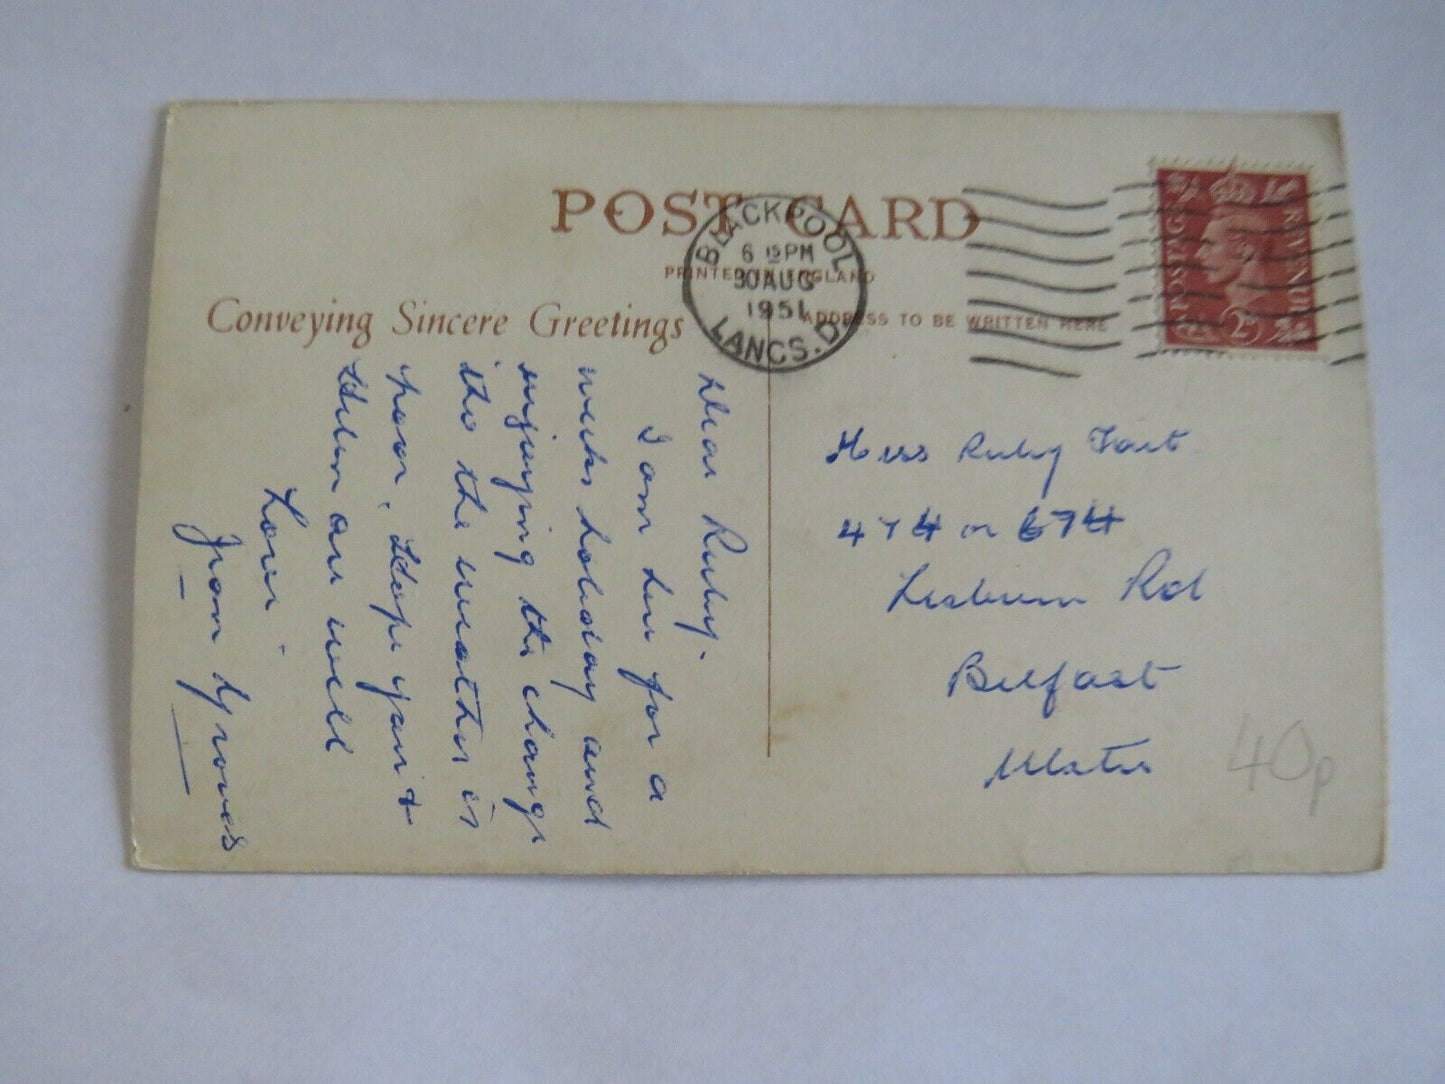 POST CARD
PRINTED IN ENGLAND
Conveying Sincere Greetings
ADDRESS TO BE WRITTEN HERE
BLACKPOOL
6 15 PM
30 AUG
1951
LANCS. D
POSTAGE
REVENUE
2D
Dear Ruby.
I am here for a
weeks holiday and
enjoying the change
tho the weather is
poor. Hope you &
Helen are well
Love
from
Miss Ruby
474 or 674
Lisburn Rd
Belfast
Ulster
40p